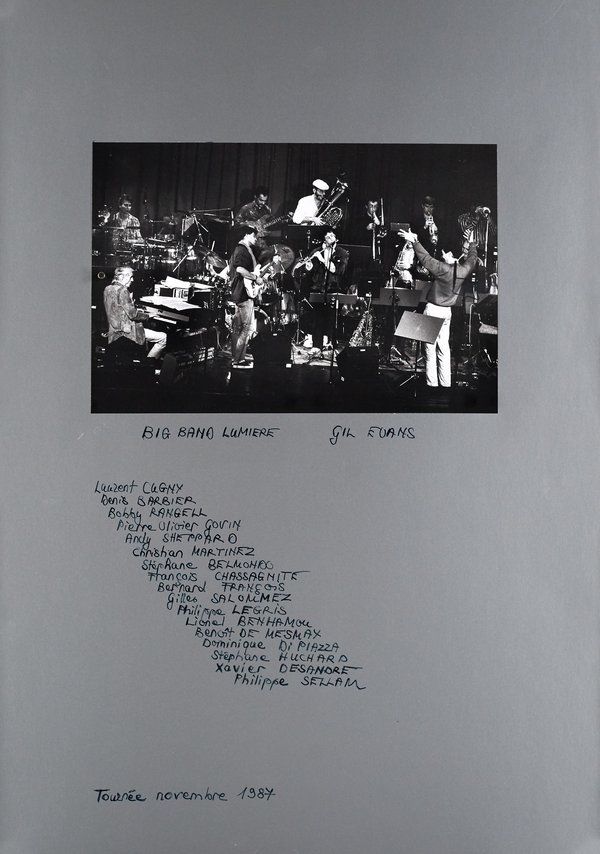 BIG BAND LUMIERE GIL EVANS
Laurent CUGNY
Denis BARBIER
Bobby RANGELL
Pierre Olivier GOVIN
Andy SHEPPARD
Christian MARTINEZ
Stéphane BELMONDO
François CHASSAGNITE
Bernard FRANÇOIS
Gilles SALOMMEZ
Philippe LEGRIS
Lionel BENHAMOU
Benoît DE MESMAY
Dominique Di PIAZZA
Stéphane HUCHARD
Xavier DESANDRE
Philippe SELLAM
Tournée novembre 1987